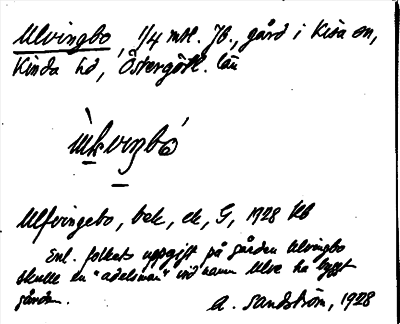 Ulvingbo, 1/4 mtl. Jb., gård i Kisa sn,
Kinda hd, Östergötl. län
Ulfvingebo, bek, ek, G, 1928 hb
Enl. folkets uppgift på gården Ulvingbo
skulle en "adelsman" vid namn Ulve ha byggt
gården.
A. Sandström, 1928